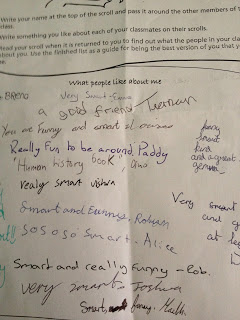 Write your name at the top of the scroll and pass it around the other members of
class.
Write something you like about each of your classmates on their scrolls.
Read your scroll when it is returned to you to find out what the people in your clas
about you. Use the finished list as a guide for being the best version of you that y
be.
What people like about me
Very Smart
a good friend
You are Funny and smart
Really Fun to be around Paddy
"Human history book",
realy smart
funny
smart
kind
and a great
Very smart
Smart and Funny, Rohan
So so so Smart. Alice
at
Smart and really Funny - Rob.
Very smart Joshua
Smart funny.